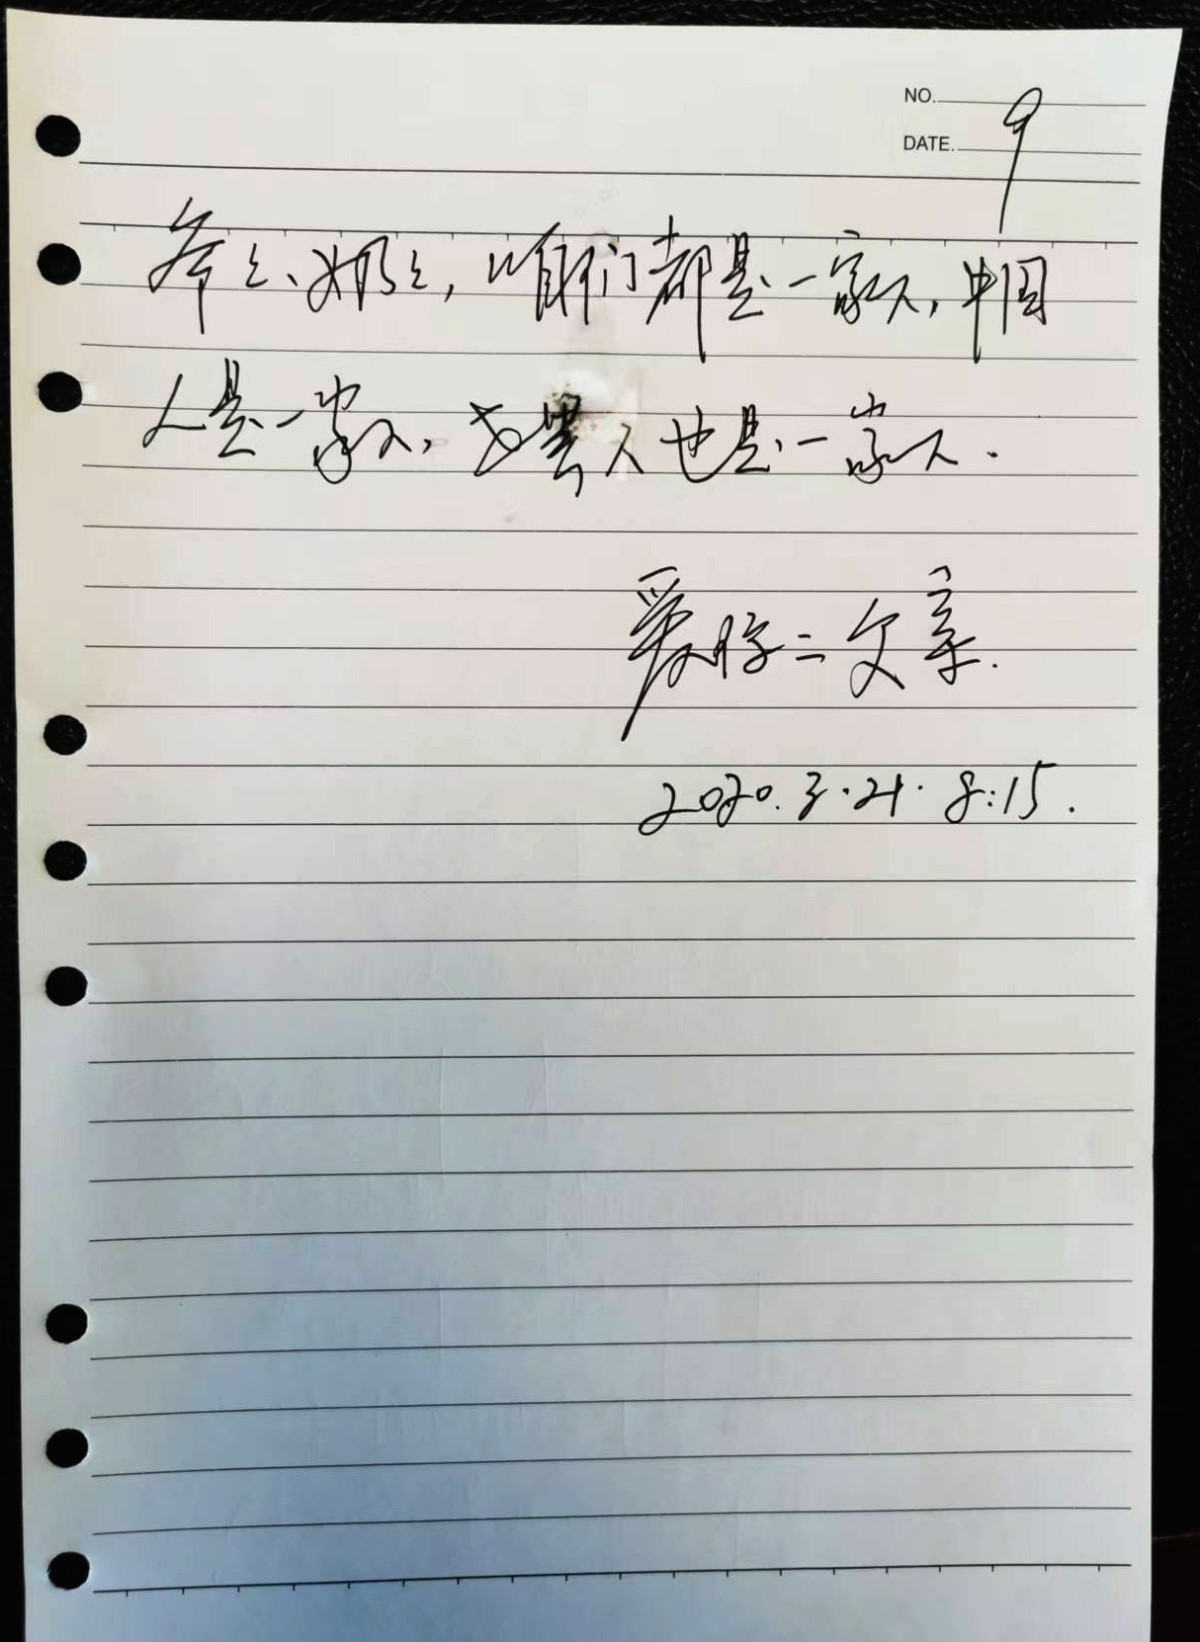 NO. 9
DATE.
爷爷、奶奶,咱们都是一家人,中国
人是一家人,世界人也是一家人.
爱你的父亲.
2020.3.21. 8:15.